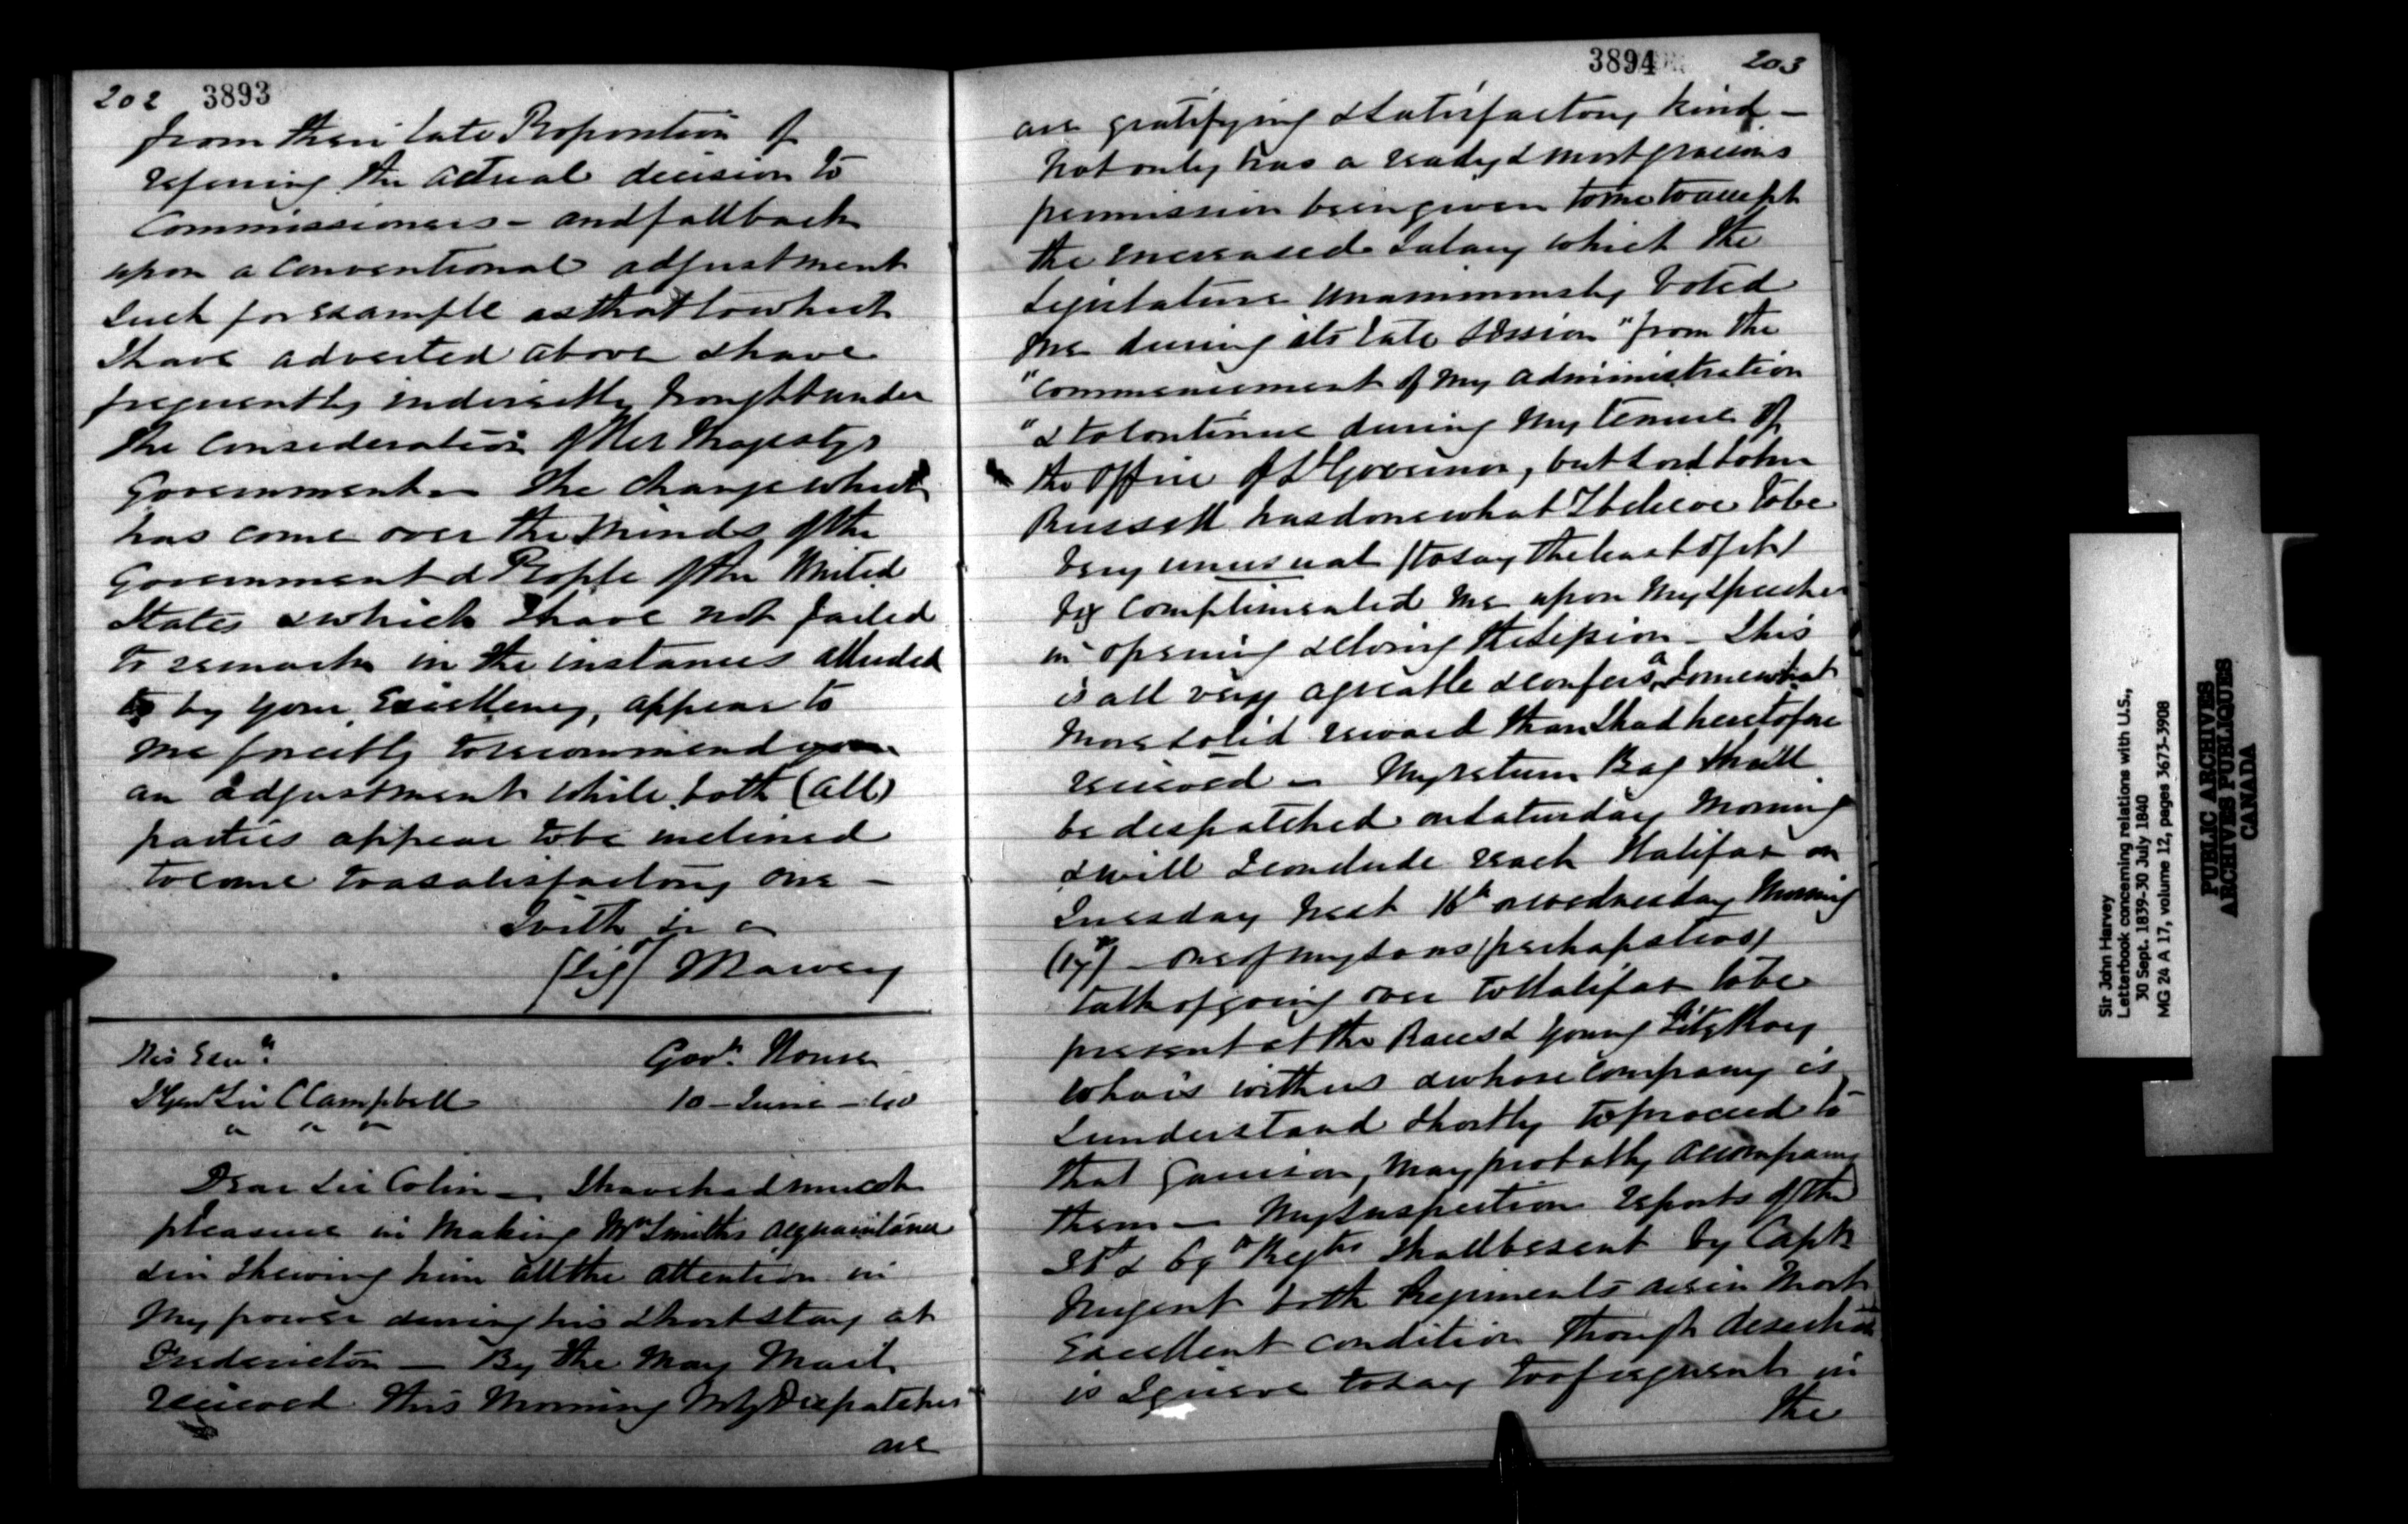 202 3893
from their late Proposition of
refering the actual decision to
Commissioners - and fall back
upon a Conventional adjustment
such for example as that to which
I have adverted above & have
frequently indirectly brought under
the consideration of Her Majestys
Government - The change which
has come over the minds of the
Government & People of the United
States & which I have not failed
to remark in the instances alluded
to by your Excellency, appear to
me forcibly to recommend
an adjustment while both (all)
parties appear to be inclined
to come to a satisfactory one -
With
(Sig) JHarvey
His Excy
Govt House
Lt Genl Sir C Campbell
10 - June - 40
" " "
Dear Sir Colin - I have had much
pleasure in making Mr Smiths acquaintance
& in shewing him all the attention in
my power during his short stay at
Fredericton - By the May Mail
received this morning My Despatches
are
3894 203
are gratifying & satisfactory kind -
Not only has a ready & most gracious
permission been given to me to accept
the increased Salary which the
Legislature unanimously voted
me during its late Session "from the
"commencement of my administration
"& to continue during my tenure of
the office of Lt Governor, but Lord John
Russell has done what I believe to be
very unusual (to say the least of it)
complimented me upon my speeches
in opening & closing the Session - This
is all very agreable & confers a somewhat
more solid reward than I had heretofore
received - My return Bag shall
be despatched on Saturday morning
& will I conclude reach Halifax on
Tuesday next 16th or Wednesday morning
(17th) - One of my sons (perhaps two)
talk of going over to Halifax to be
present at the Races & young FitzRoy
who is with us & whose company is
I understand shortly to proceed to
that Garrison, may probably accompany
them - My Inspection reports of the
& 69th Regts shall be sent by Capt
Nugent both Regiments are in most
Excellent condition though desertion
is I grieve to say too frequent in
the
Sir John Harvey
Letterbook concerning relations with U.S.,
30 Sept. 1839-30 July 1840
MG 24 A 17, volume 12, pages 3673-3908
PUBLIC ARCHIVES
ARCHIVES PUBLIQUES
CANADA